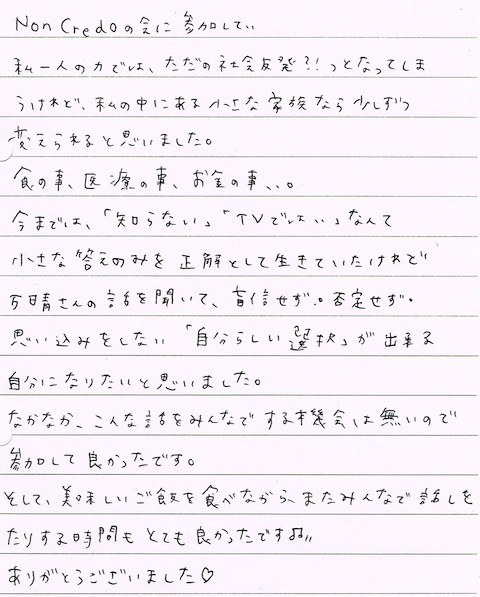 Non Credoの会に参加してい
私一人の力では、ただの社会反発?!っとなってしま
うけれど、私の中にある小さな家族なら少しずつ
変えられると思いました。
食の事、医療の事、お金の事、、。
今までは、「知らない」「TVでは、、」なんて
小さな答えのみを正解として生きていたけれど
万晴さんの話を聞いて、盲信せず。否定せず。
思い込みをしない「自分らしい選択」が出来る
自分になりたいと思いました。
なかなか、こんな話をみんなでする機会は無いので
参加して良かったです。
そして、美味しいご飯を食べながら、またみんなで話しを
たりする時間もとても良かったです
ありがとうございました♡